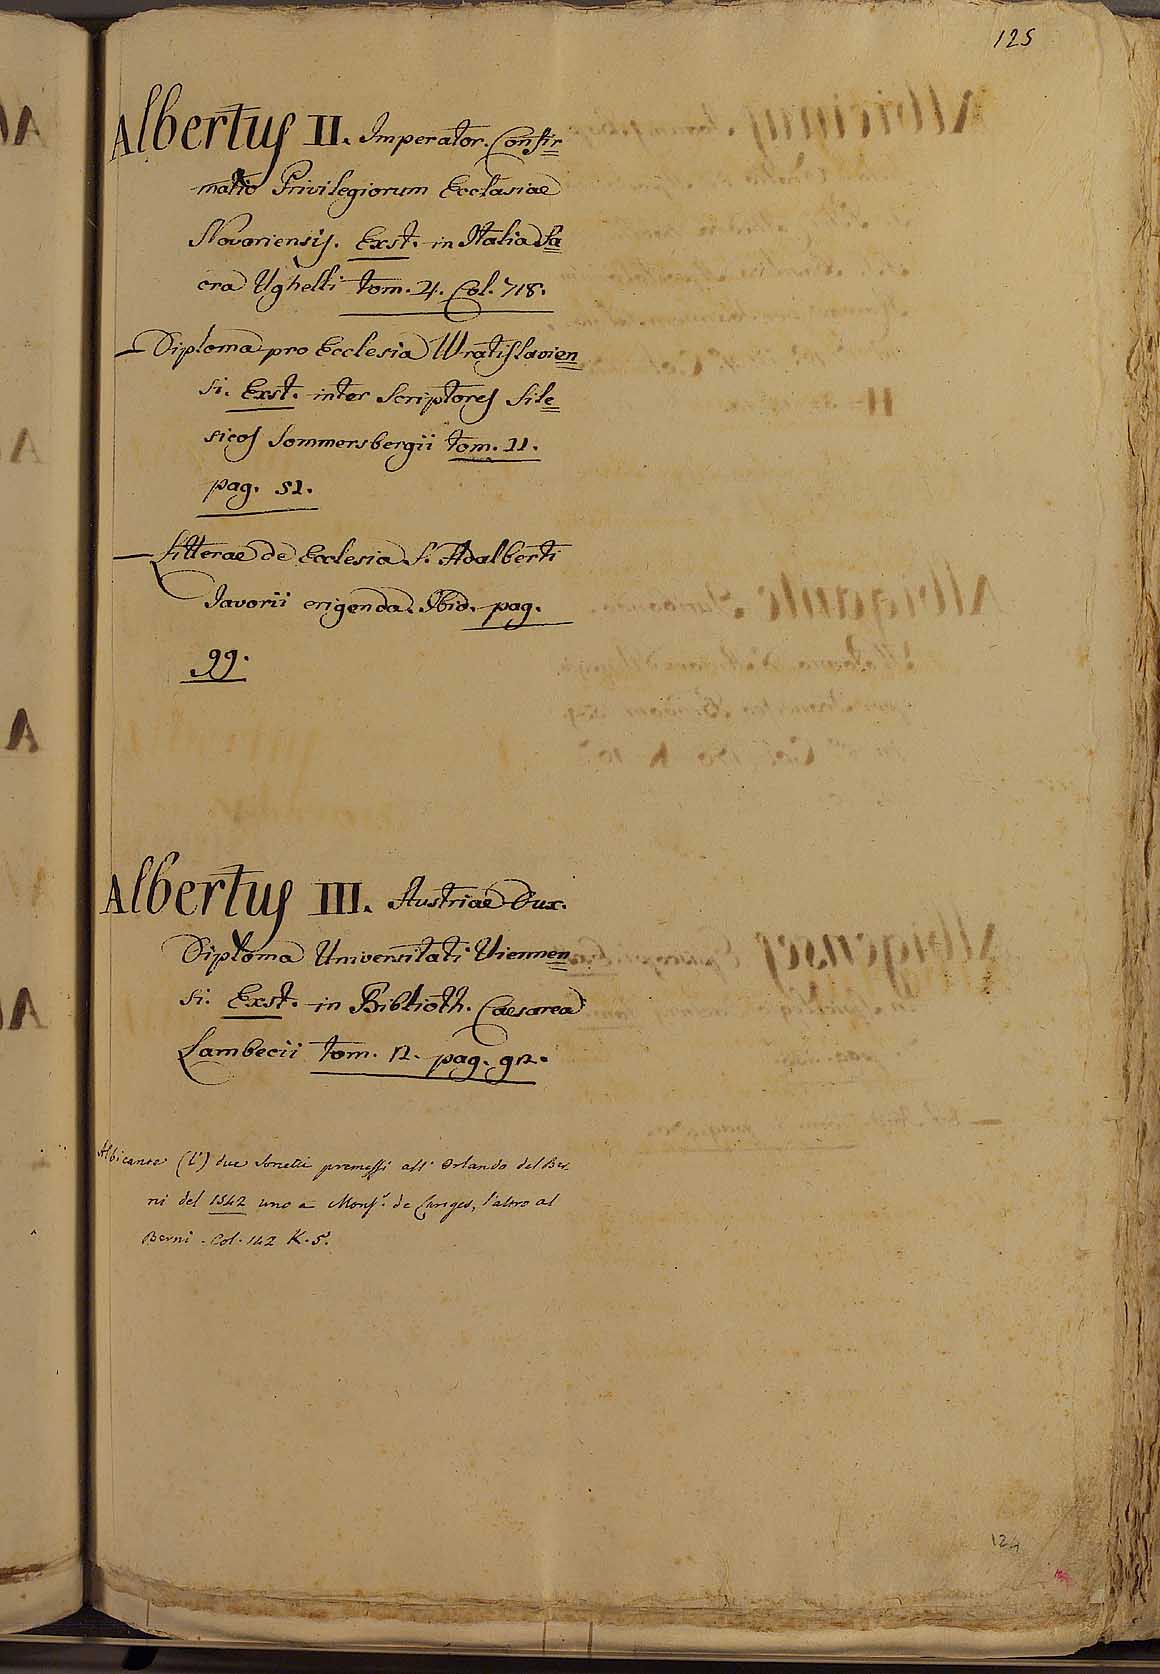 125
Albertus II. Imperator. Confir=
matio Privilegiorum Ecclesiae
Novariensis. Exst. in Italia Sa=
cra Ughelli tom. 4. Col. 718.
— Diploma pro Ecclesia Wratislavien=
si. Exst. inter Scriptores Sile=
sicos Sommersbergii tom. 11.
pag. 51.
— Litterae de Ecclesia S. Adalberti
Javorii erigenda. Ibid. pag.
99.
Albertus III. Austriae Dux.
Diploma Universitati Viennen=
si. Exst. in Biblioth. Caesarea
Lambecii tom. 12. pag. 92.
Albicante (L') due Sonetti premessi all' Orlando del Ber
ni del 1542 uno a Mons.r de l'altro al
Berni. Col. 142 K. 5.
124